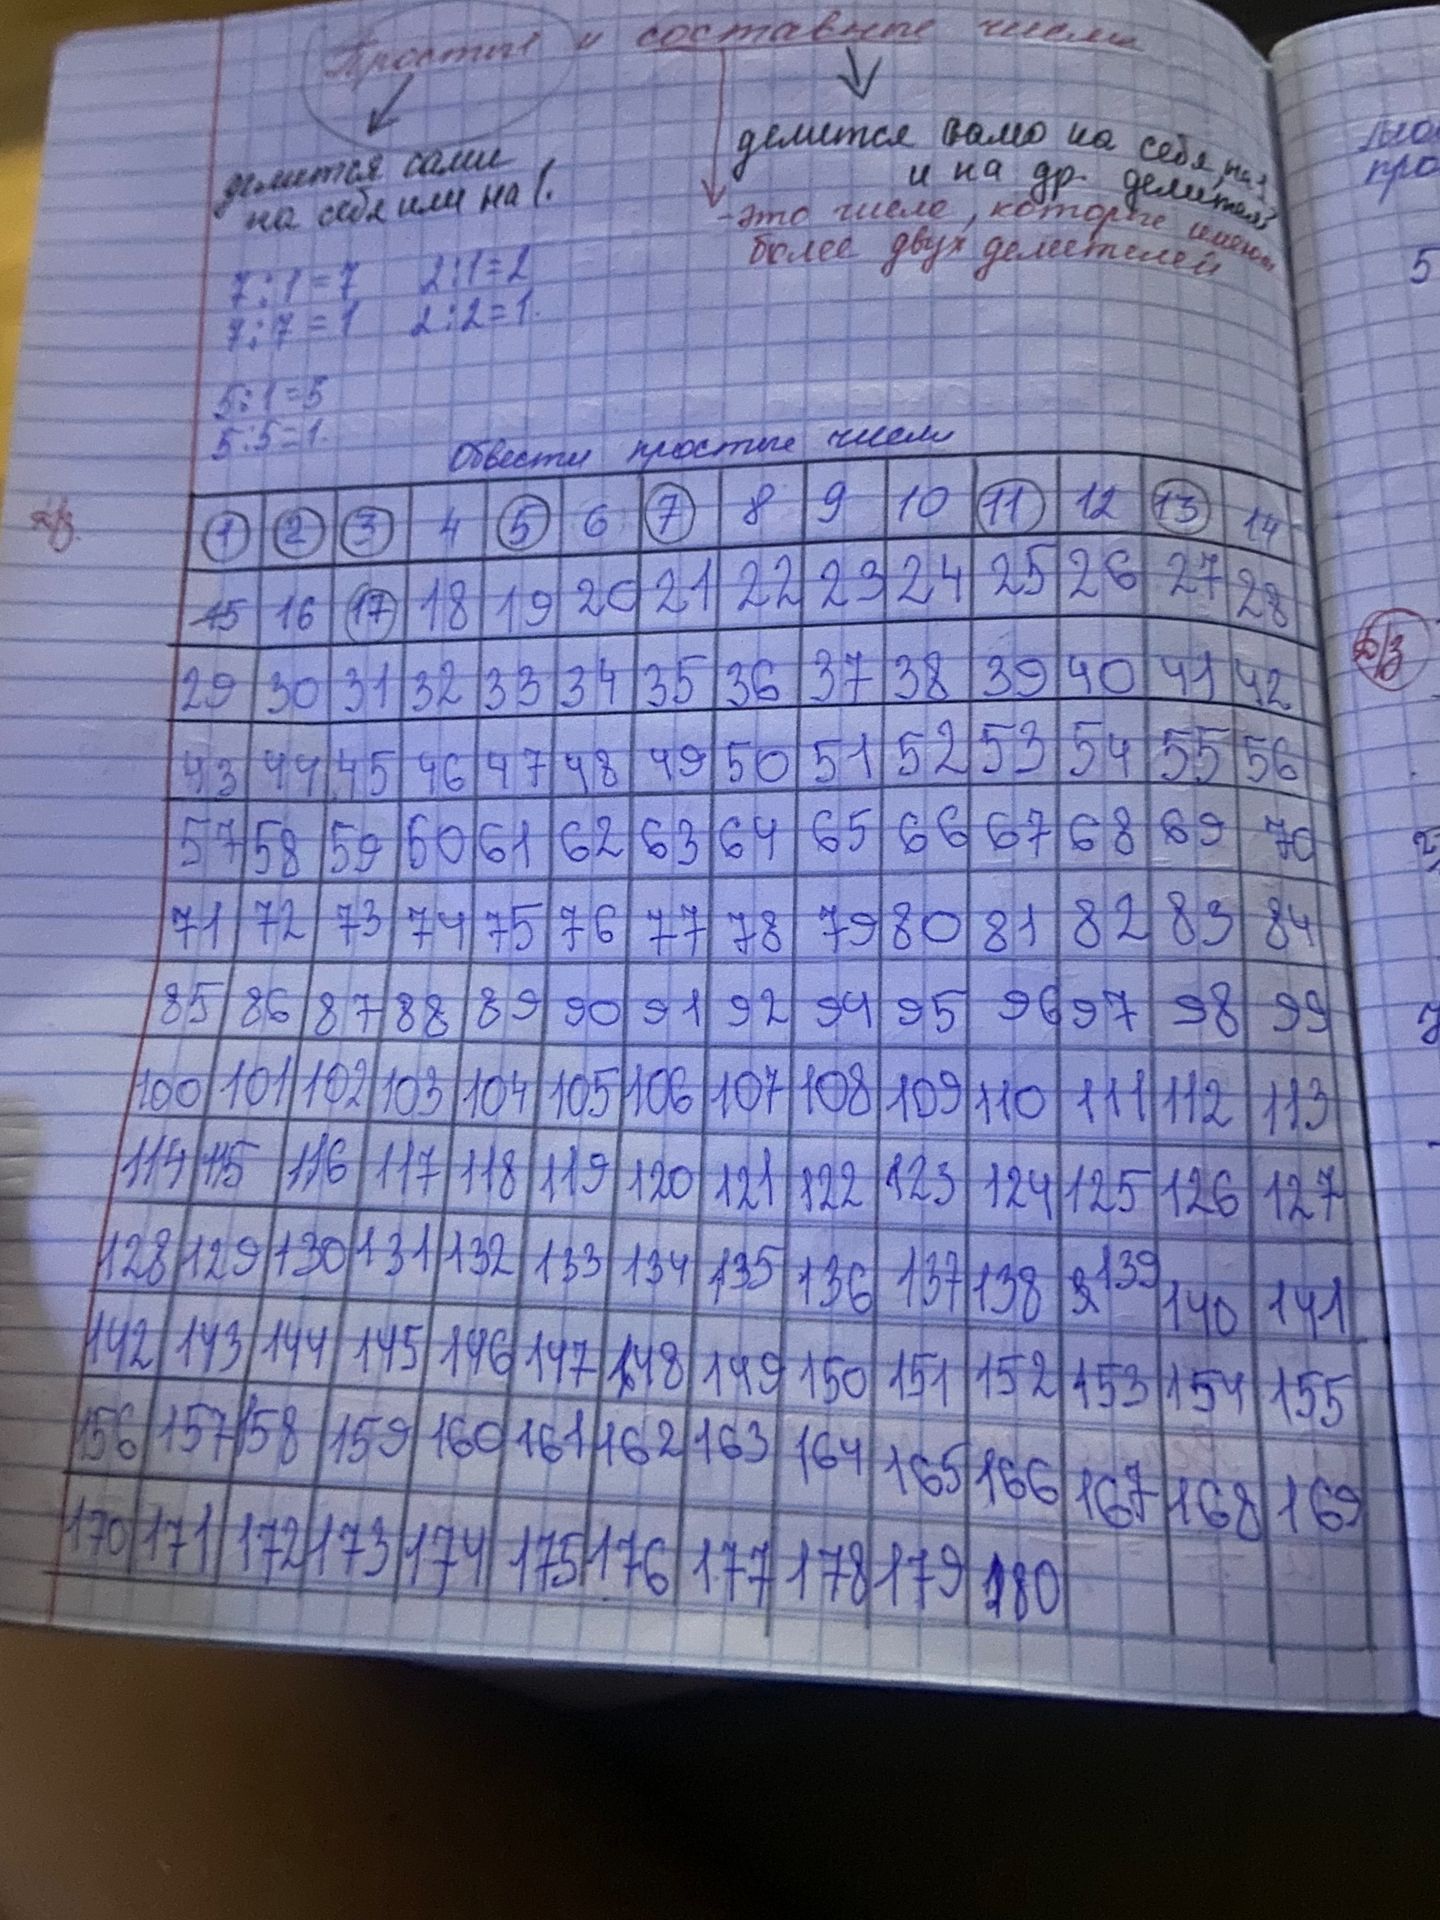 Простые и составные числа
делится сами
на себя или на 1.
делится само на себя, на 1
и на др. делится
- это числа, которые имеют
более двух делителей
7:1=7 2:1=2
7:7=1 2:2=1.
5:1=5
5:5=1.
Обвести простые числа
д/з.
1 2 3 4 5 6 7 8 9 10 11 12 13 14
15 16 17 18 19 20 21 22 23 24 25 26 27 28
29 30 31 32 33 34 35 36 37 38 39 40 41 42
43 44 45 46 47 48 49 50 51 52 53 54 55 56
57 58 59 60 61 62 63 64 65 66 67 68 69 70
71 72 73 74 75 76 77 78 79 80 81 82 83 84
85 86 87 88 89 90 91 92 94 95 96 97 98 99
100 101 102 103 104 105 106 107 108 109 110 111 112 113
114 115 116 117 118 119 120 121 122 123 124 125 126 127
128 129 130 131 132 133 134 135 136 137 138 139 140 141
142 143 144 145 146 147 148 149 150 151 152 153 154 155
156 157 158 159 160 161 162 163 164 165 166 167 168 169
170 171 172 173 174 175 176 177 178 179 180
про
5
Д/з